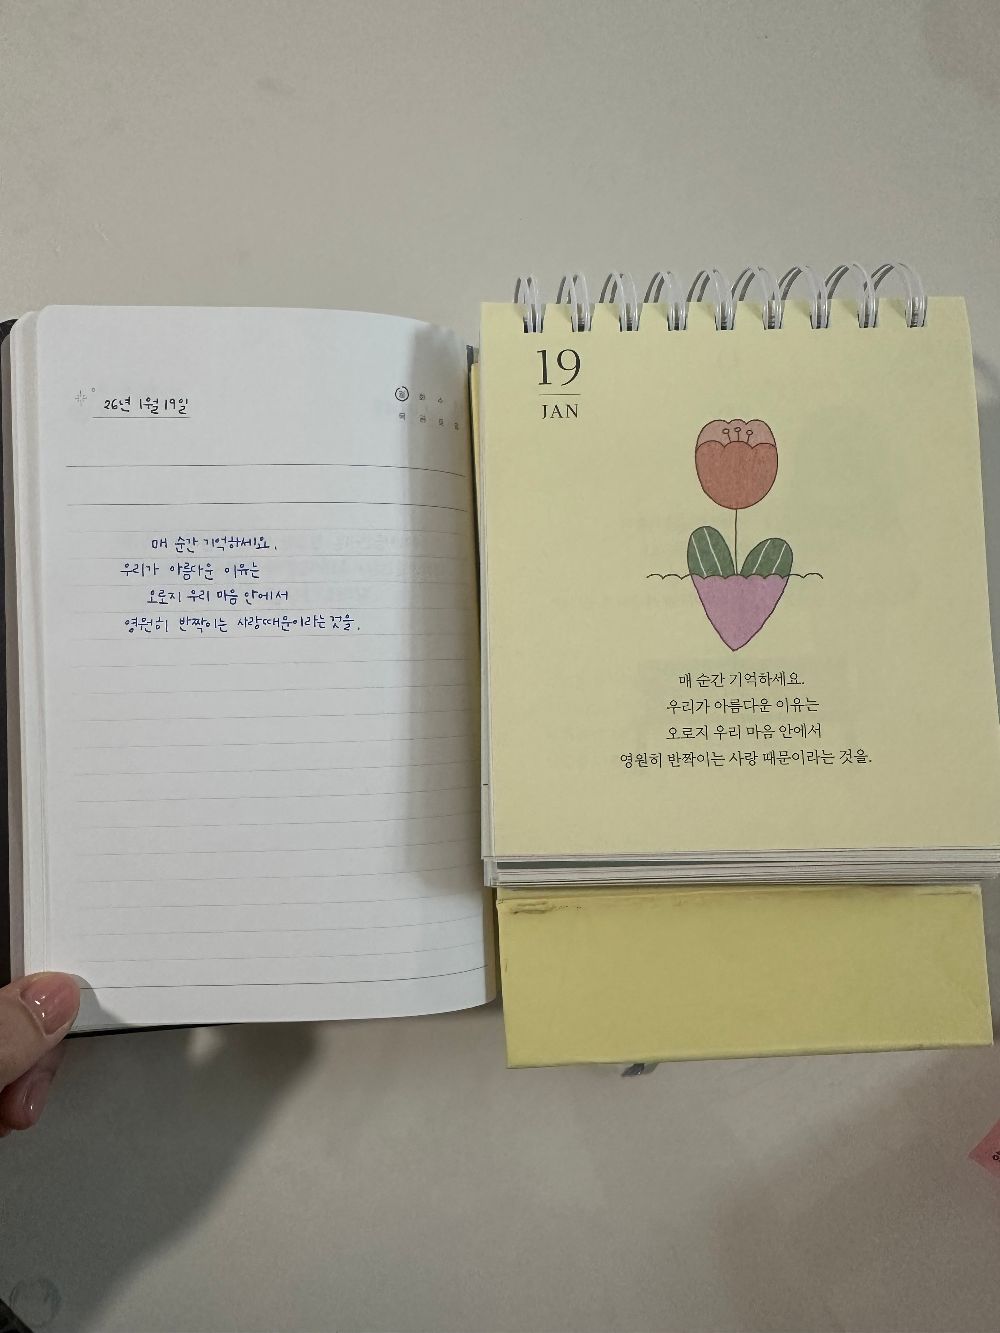 26년 1월 19일
월 화 수
목 금 토 일
매 순간 기억하세요.
우리가 아름다운 이유는
오로지 우리 마음 안에서
영원히 반짝이는 사랑때문이라는것을.
19
JAN
매 순간 기억하세요.
우리가 아름다운 이유는
오로지 우리 마음 안에서
영원히 반짝이는 사랑 때문이라는 것을.